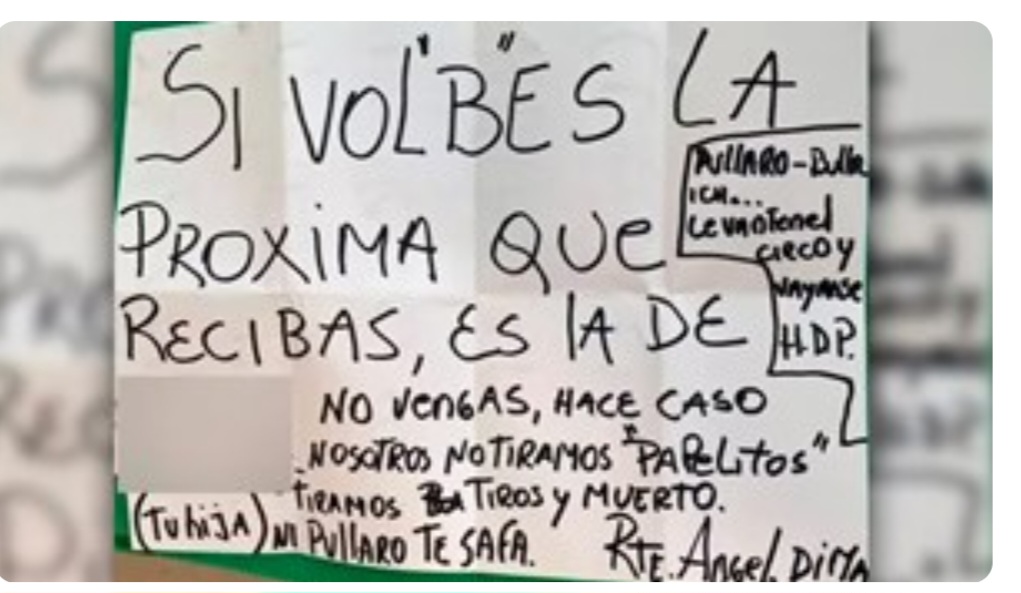 SI VOL"B"ES LA
PROXIMA QUE
RECIBAS, ES lA DE
PUllARO-Bulla
ICH...
LevanTenel
CIRCO Y
VAYANSE
H.D.P.
NO VENGAS, HACE CASO
NOSOTROS NO TIRAMOS "PAPELITOS"
TIRAMOS TIROS y MUERTO.
(Tu hiJA) NI PUllARO TE SAFA.
RTE. ANGEL DIMA